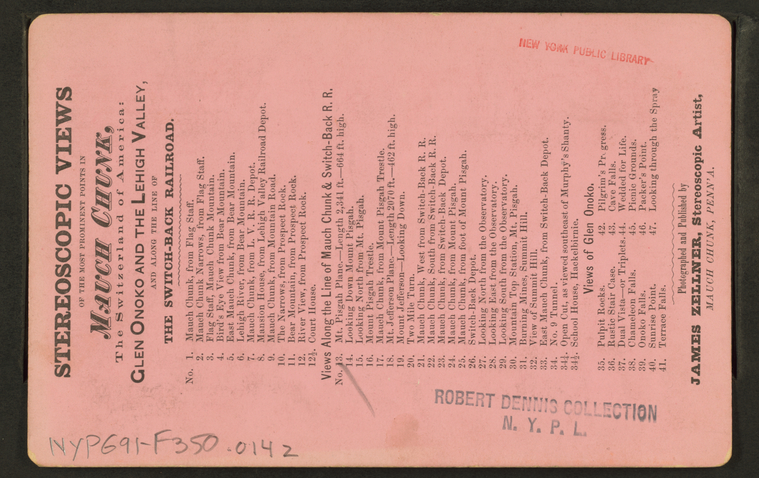 STEREOSCOPIC VIEWS
OF THE MOST PROMINENT POINTS IN
MAUCH CHUNK,
The Switzerland of America:
GLEN ONOKO AND THE LEHIGH VALLEY,
AND ALONG THE LINE OF
THE SWITCH-BACK RAILROAD.
No. 1. Mauch Chunk, from Flag Staff.
2. Mauch Chunk Narrows, from Flag Staff.
3. Flag Staff, Mauch Chunk Mountain.
4. Bird's Eye View from Bear Mountain.
5. East Mauch Chunk, from Bear Mountain.
6. Lehigh River, from Bear Mountain.
7. Mauch Chunk, from L. V. R. R. Depot.
8. Mansion House, from Lehigh Valley Railroad Depot.
9. Mauch Chunk, from Mountain Road.
10. The Narrows, from Prospect Rock.
11. Bear Mountain, from Prospect Rock.
12. River View, from Prospect Rock.
12½. Court House.
Views Along the Line of Mauch Chunk & Switch-Back R. R.
No. 13. Mt. Pisgah Plane.—Length 2,341 ft.—664 ft. high.
14. Looking Down Mount Pisgah.
15. Looking North from Mt. Pisgah.
16. Mount Pisgah Trestle.
17. Mauch Chunk, from Mount Pisgah Trestle.
18. Mt. Jefferson Plane—Length 2070 ft.—462 ft. high.
19. Mount Jefferson—Looking Down.
20. Two Mile Turn.
21. Mauch Chunk, West from Switch-Back R. R.
22. Mauch Chunk, South from Switch-Back R. R.
23. Mauch Chunk, from Switch-Back Depot.
24. Mauch Chunk, from Mount Pisgah.
25. Mauch Chunk, from foot of Mount Pisgah.
26. Switch-Back Depot.
27. Looking North from the Observatory.
28. Looking East from the Observatory.
29. Looking South from the Observatory.
30. Mountain Top Station, Mt. Pisgah.
31. Burning Mines, Summit Hill.
32. View of Summit Hill.
33. East Mauch Chunk, from Switch-Back Depot.
34. No. 9 Tunnel.
34¼. Open Cut, as viewed southeast of Murphy's Shanty.
34½. School House, Hackelbirnie.
Views of Glen Onoko.
35. Pulpit Rocks. 42. Pilgrim's Progress.
36. Rustic Stair Case. 43. Cave Falls.
37. Dual Vista—or Triplets. 44. Wedded for Life.
38. Chameleon Falls. 45. Picnic Grounds.
39. Onoko Falls. 46. Packer's Point.
40. Sunrise Point. 47. Looking through the Spray
41. Terrace Falls.
Photographed and Published by
JAMES ZELLNER, Stereoscopic Artist,
MAUCH CHUNK, PENN'A.
NEW YORK PUBLIC LIBRARY
ROBERT DENNIS COLLECTION
N. Y. P. L.
NYPG91-F350.0142